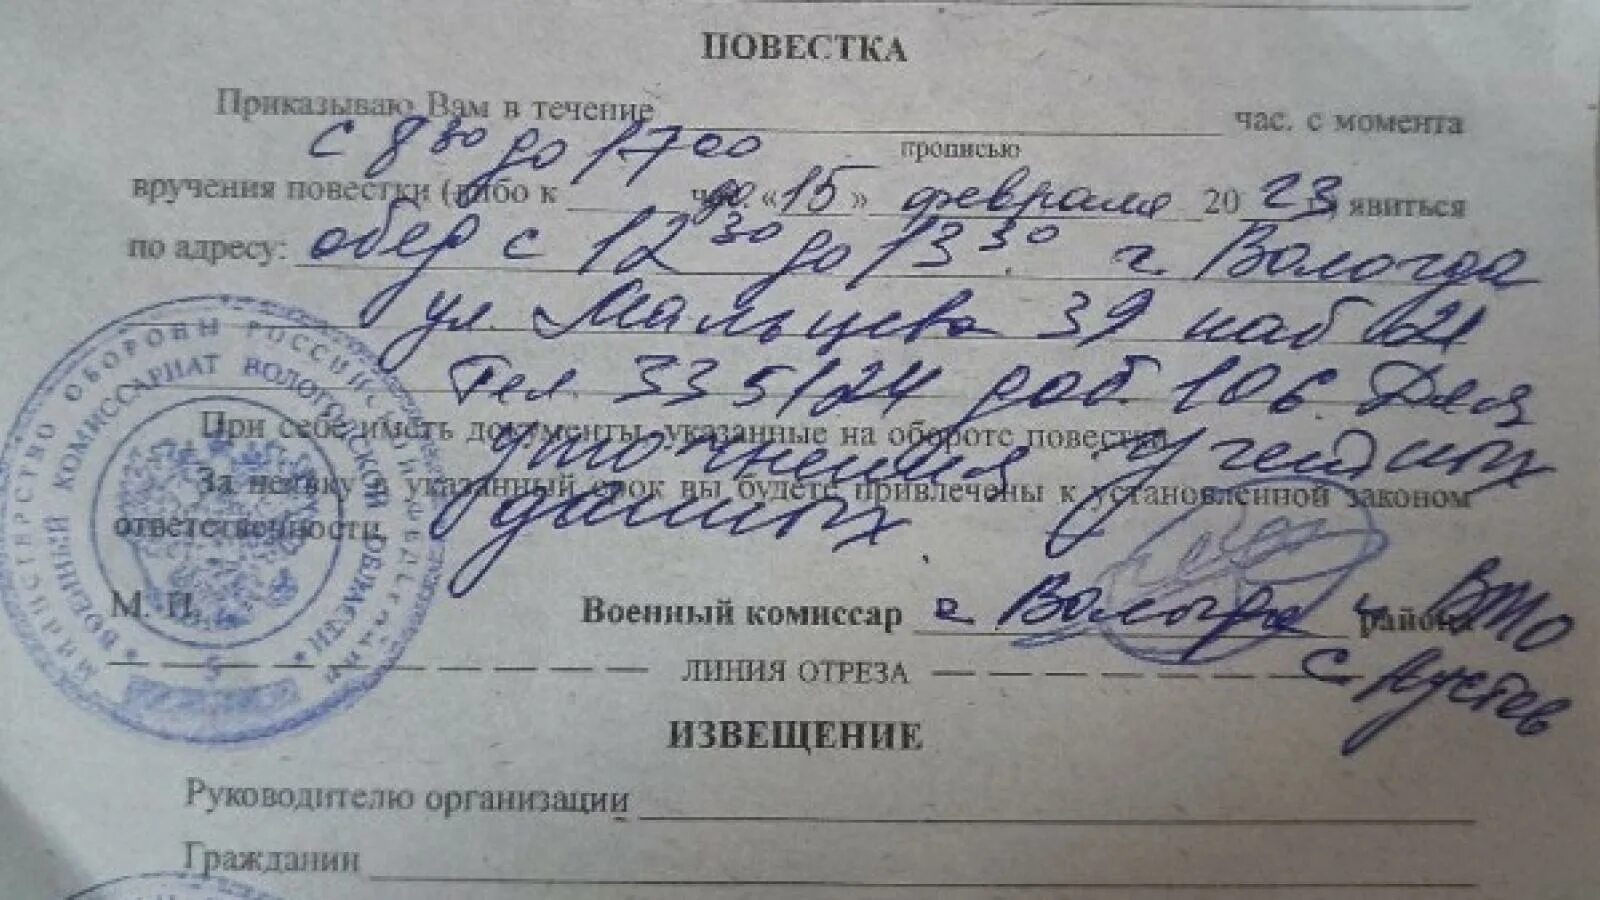 ПОВЕСТКА
Приказываю Вам в течение час. с момента
с 8 30 до 17 00
прописью
вручения повестки (либо к до «15» февраля 2023, явиться
по адресу: обед с 12 30 до 13 30 г. Вологда
ул. Мальцева 39 каб 21
Тел. 335124 доб. 106. Для
При себе иметь документы, указанные на обороте повестки.
уточнения учетных
За неявку в указанный срок вы будете привлечены к установленной законом
ответственности.
данных.
М. П.
Военный комиссар г. Вологда и ВМО района
С. Пустов
ЛИНИЯ ОТРЕЗА
ИЗВЕЩЕНИЕ
Руководителю организации
Гражданин
МИНИСТЕРСТВО ОБОРОНЫ РОССИЙСКОЙ ФЕДЕРАЦИИ
ВОЕННЫЙ КОМИССАРИАТ ВОЛОГОДСКОЙ ОБЛАСТИ
5